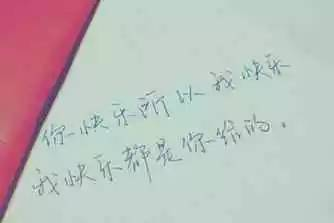 你快乐所以我快乐
我快乐都是你给的。